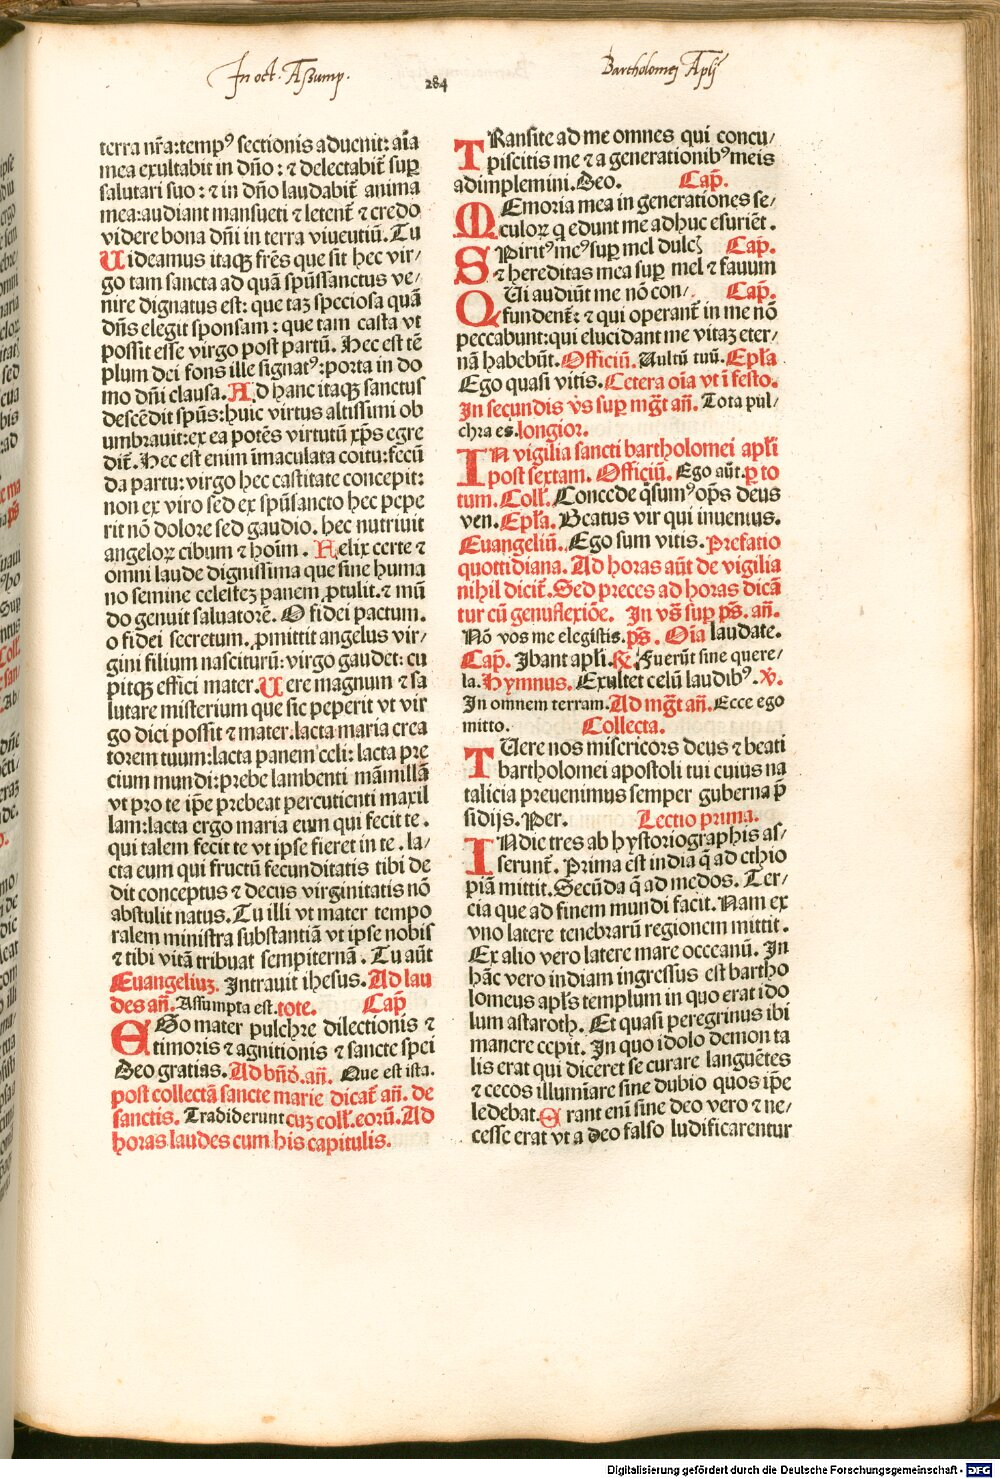 In oct. Assump.
284
Bartholomej Aplj
terra nr̃a:tempꝰ sectionis aduenit: aĩa
mea exultabit in dño : ⁊ delectabit̃ suꝑ
salutari suo : ⁊ in dño laudabit̃ anima
mea:audiant mansueti ⁊ letent̃ ⁊ credo
videre bona dñi in terra viuentiũ. Tu
Uideamus itaqꝫ fr̃es que sit hec vir⸗
go tam sancta ad quã spũssanctus ve⸗
nire dignatus est: que taꝫ speciosa quã
dñs elegit sponsam : que tam casta vt
possit esse virgo post partũ. Hec est tẽ
plum dei fons ille signatꝰ:porta in do
mo dñi clausa. Ad hanc itaqꝫ sanctus
descẽdit spũs:huic virtus altissimi ob
umbrauit:ex ea potẽs virtutũ xp̃s egre
dit̃. Hec est enim ĩmaculata coitu:fecũ
da partu:virgo hec castitate concepit:
non ex viro sed ex spũsancto hec pepe
rit nõ dolore sed gaudio. hec nutriuit
angeloꝝ cibum ⁊ hoĩm . Felix certe ⁊
omni laude dignissima que sine huma
no semine celestẽ panem ꝓtulit. ⁊ mũ
do genuit saluatorẽ. O fidei pactum.
o fidei secretum. ꝓmittit angelus vir⸗
gini filium nasciturũ: virgo gaudet: cu
pitqꝫ effici mater. Uere magnum ⁊ sa
lutare misterium que sic peperit vt vir
go dici possit ⁊ mater. lacta maria crea
torem tuum:lacta panem celi: lacta pre
cium mundi:prebe lambenti mãmillã
vt pro te ip̃e prebeat percutienti maxil
lam:lacta ergo maria eum qui fecit te .
qui talem fecit te vt ipse fieret in te . la⸗
cta eum qui fructũ fecunditatis tibi de
dit conceptus ⁊ decus virginitatis nõ
abstulit natus. Tu illi vt mater tempo
ralem ministra substantiã vt ipse nobis
⁊ tibi vitã tribuat sempiternã . Tu aũt
Euangeliuꝫ. Intrauit ihesus. Ad lau
des añ. Assumpta est. tote. Cap̃
EGo mater pulchre dilectionis ⁊
timoris ⁊ agnitionis ⁊ sancte spei
Deo gratias. Ad bñd. añ. Que est ista.
post collectã sancte marie dicat̃ añ. de
sanctis. Tradiderunt cuꝫ coll̃. eorũ. Ad
horas laudes cum his capitulis.
TRansite ad me omnes qui concu⸗
piscitis me ⁊ a generationibꝰ meis
adimplemini. Deo. Cap̃.
MEmoria mea in generationes se⸗
culoꝝ q edunt me adhuc esuriẽt .
SPiritꝰ meꝰ suꝑ mel dulcꝭ Cap̃.
⁊ hereditas mea suꝑ mel ⁊ fauum
QUi audiũt me nõ con⸗. Cap̃.
fundent̃: ⁊ qui operant̃ in me nõ
peccabunt:qui elucidant me vitaꝫ eter⸗
nã habebũt. Officiũ. Uultũ tuũ. Ep̃la
Ego quasi vitis. Cetera oĩa vt ĩ festo.
In secundis vs̃ suꝑ mg̃t añ. Tota pul⸗
chra es. longior.
IN vigilia sancti bartholomei apl̃i
post sextam. Officiũ. Ego aũt. ꝑ to
tum. Coll̃. Concede q̃sumꝰ op̃s deus
ven. Ep̃la. Beatus vir qui inuenius.
Euangeliũ. Ego sum vitis. Prefatio
quottidiana. Ad horas aũt de vigilia
nihil dicit̃. Sed preces ad horas dicã
tur cũ genuflexiõe. In vs̃ suꝑ ps̃. añ.
Nõ vos me elegistis. ps̃. Oĩa laudate.
Cap̃. Ibant apl̃i. ℟. Fuerũt sine quere⸗
la. Hymnus. Exultet celũ laudibꝰ. ℣.
In omnem terram. Ad mg̃t añ. Ecce ego
mitto. Collecta.
TUere nos misericors deus ⁊ beati
bartholomei apostoli tui cuius na
talicia preuenimus semper guberna p̃
sidijs. Per. Lectio prima.
INdie tres ab hystoriographis as⸗
serunt̃. Prima est india q̃ ad ethio
piã mittit. Secũda q̃ ad medos. Ter⸗
cia que ad finem mundi facit. Nam ex
vno latere tenebrarũ regionem mittit .
Ex alio vero latere mare occeanũ. In
hãc vero indiam ingressus est bartho
lomeus apl̃s templum in quo erat ido
lum astaroth. Et quasi peregrinus ibi
manere cepit. In quo idolo demon ta
lis erat qui diceret se curare languẽtes
⁊ cecos illumĩare sine dubio quos ip̃e
ledebat. Erant enĩ sine deo vero ⁊ ne⸗
cesse erat vt a deo falso ludificarentur
Digitalisierung gefördert durch die Deutsche Forschungsgemeinschaft - DFG